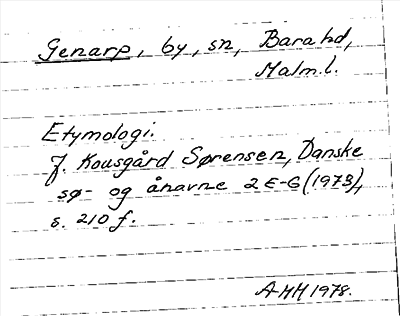 Genarp, by, sn, Bara hd,
Malm.l.
Etymologi.
J. Kousgård Sørensen, Danske
sø- og ånavne 2 E-G (1973),
s. 210 f.
AHH 1978.